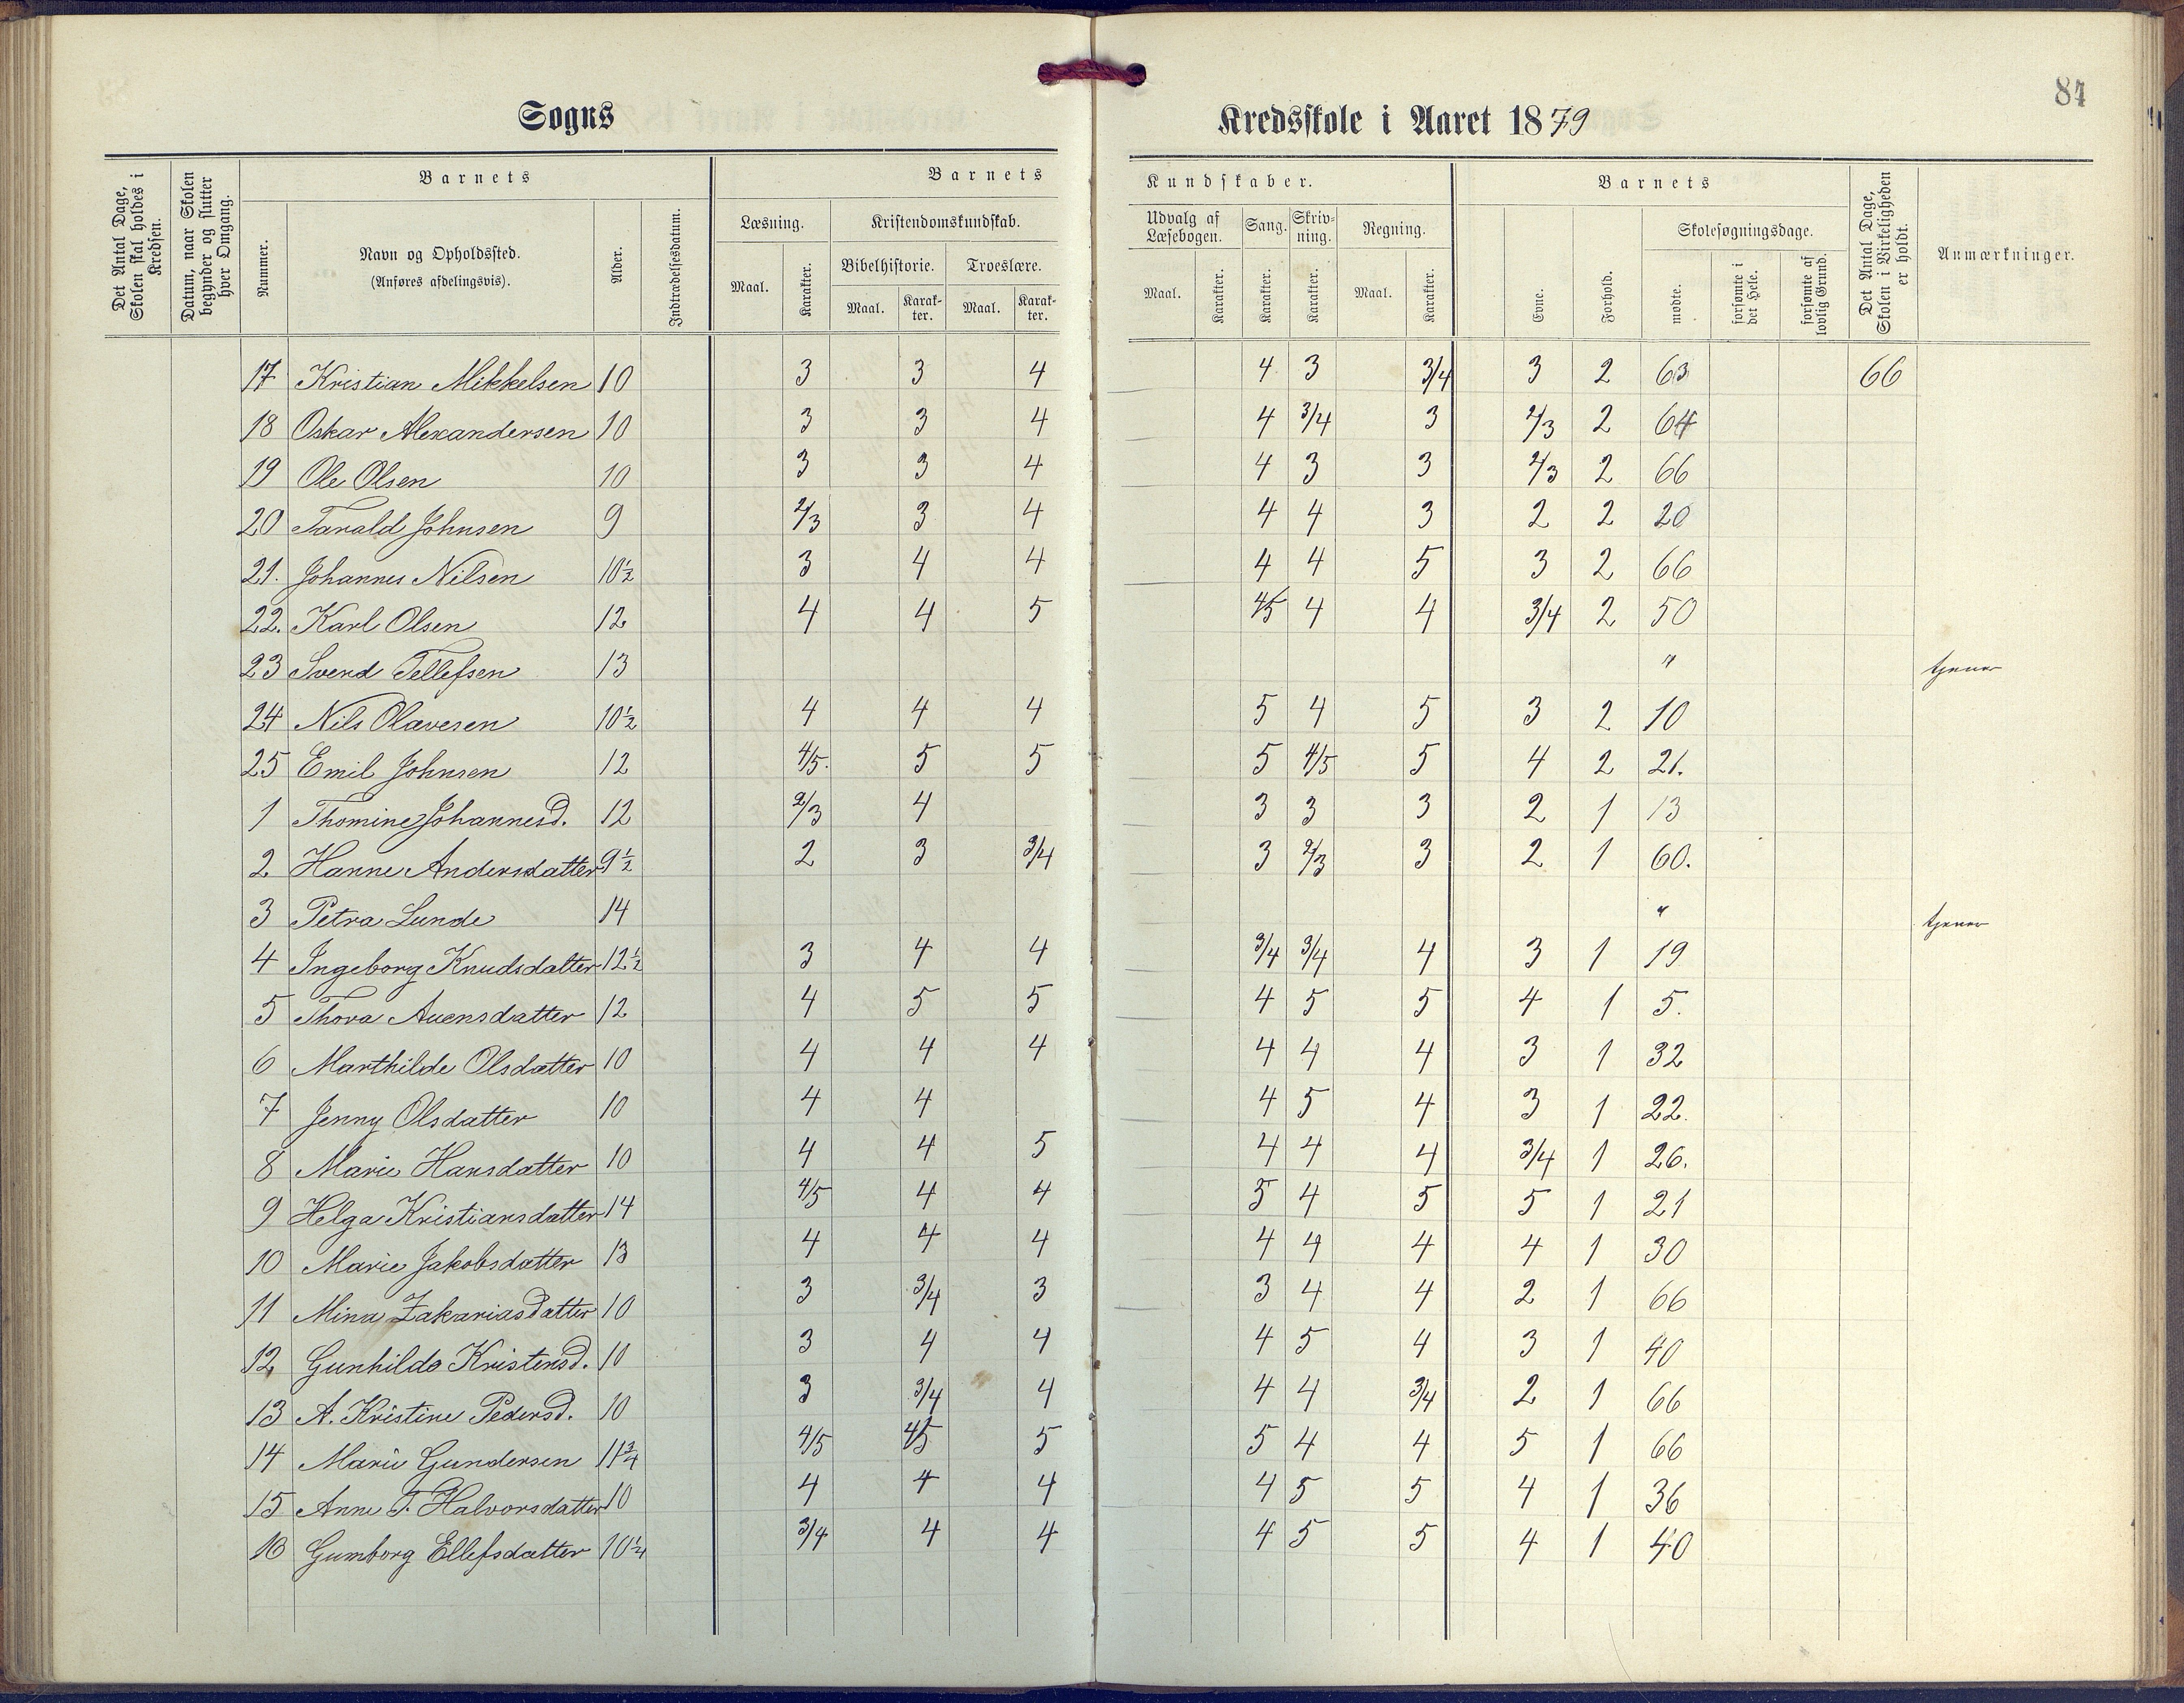 84
Sogns Kredsskole i Aaret 1879
Det Antal Dage, Skolen skal holdes i Kredsen.
Datum, naar Skolen begynder og slutter hver Omgang.
Barnets
Nummer.
Navn og Opholdssted.
(Anføres afdelingsvis).
Alder.
Indtrædelsesdatum.
Barnets Kundskaber.
Læsning.
Maal.
Karakter.
Kristendomskundskab.
Bibelhistorie.
Maal.
Karakter.
Troeslære.
Maal.
Karakter.
Udvalg af Læsebogen.
Maal.
Karakter.
Sang.
Karakter.
Skrivning.
Karakter.
Regning.
Maal.
Karakter.
Barnets
Evne.
Forhold.
Skolesøgningsdage.
mødte.
forsømte i det Hele.
forsømte af lovlig Grund.
Det Antal Dage, Skolen i Virkeligheden er holdt.
Anmærkninger.
17 Kristian Mikkelsen 10 3 3 4 4 3 3/4 3 2 63 66
18 Oskar Alexandersen 10 3 3 4 4 3/4 3 2/3 2 64
19 Ole Olsen 10 3 3 4 4 3 3 2/3 2 66
20 Tarald Johnsen 9 2/3 3 4 4 4 3 2 2 20
21. Johannes Nilsen 10½ 3 4 4 4 4 5 3 2 66
22. Karl Olsen 12 4 4 5 4/5 4 4 3/4 2 50
23 Svend Tellefsen 13 " tjener
24 Nils Olavesen 10½ 4 4 4 5 4 5 3 2 10
25 Emil Johnsen 12 4/5. 5 5 5 4/5 5 4 2 21.
1 Thomine Johannesd. 12 2/3 4 3 3 3 2 1 13
2 Hanne Andersdatter 9½ 2 3 3/4 3 2/3 3 2 1 60.
3 Petra Lunde 14 " tjener
4 Ingeborg Knudsdatter 12½ 3 4 4 3/4 3/4 4 3 1 19
5 Thora Auensdatter 12 4 5 5 4 5 5 4 1 5.
6 Marthilde Olsdatter 10 4 4 4 4 4 4 3 1 32
7 Jenny Olsdatter 10 4 4 4 5 4 3 1 22.
8 Marie Hansdatter 10 4 4 5 4 4 4 3/4 1 26.
9 Helga Kristiansdatter 14 4/5 4 4 5 4 5 5 1 21
10 Marie Jakobsdatter 13 4 4 4 4 4 4 4 1 30
11 Mina Zakariasdatter 10 3 3/4 3 3 4 4 2 1 66
12 Gunhilde Kristensd. 10 3 4 4 4 5 4 3 1 40
13 A. Kristine Pedersd. 10 3 3/4 4 4 4 3/4 2 1 66
14 Marie Gundersen 11¾ 4/5 4/5 5 5 4 4 5 1 66
15 Anne T. Halvorsdatter 10 4 4 4 4 5 5 4 1 36
16 Gumborg Ellefsdatter 10¼ 3/4 4 4 4 5 5 4 1 40